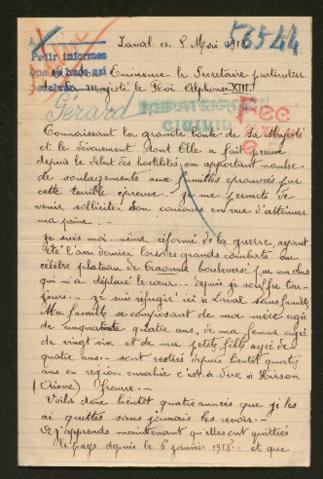 56544
Laval ce 8 Mai
Pedir informes
Eminence le Secretaire particulier
majesté le Roi Alphonse XIII.
Gérard
Connaissant la grande bonté de Sa Majesté
et le dévouement dont Elle a fait preuve
depuis le debut des hostilités, en apportant
de soulagements aux familles éprouvées par
cette terrible épreuve. Je me permets de
venir solliciter Son concours en vue d'atténuer
ma peine.
je suis moi-même réformé de la guerre, ayant
été l'an dernier lors des grands combats au
célèbre plateau de Craonne bouleversé par un obus
qui m'a déplacé le cœur... depuis je souffre tou-
jours. - Je suis réfugié ici à Laval sans famille
Ma famille se composant de ma mère agée
de cinquante quatre ans, de ma femme agée
de vingt six et de ma petite fille agée de
quatre ans. - sont restées depuis bientôt quatre
ans en région envahie c'est-à-dire à Hirson
(Aisne) France. -
Voilà donc bientôt quatre années que je les
ai quittés sans jamais les revoir. -
Or j'apprends maintenant qu'elles ont quittées
le pays depuis le 6 janvier 1918. - et que